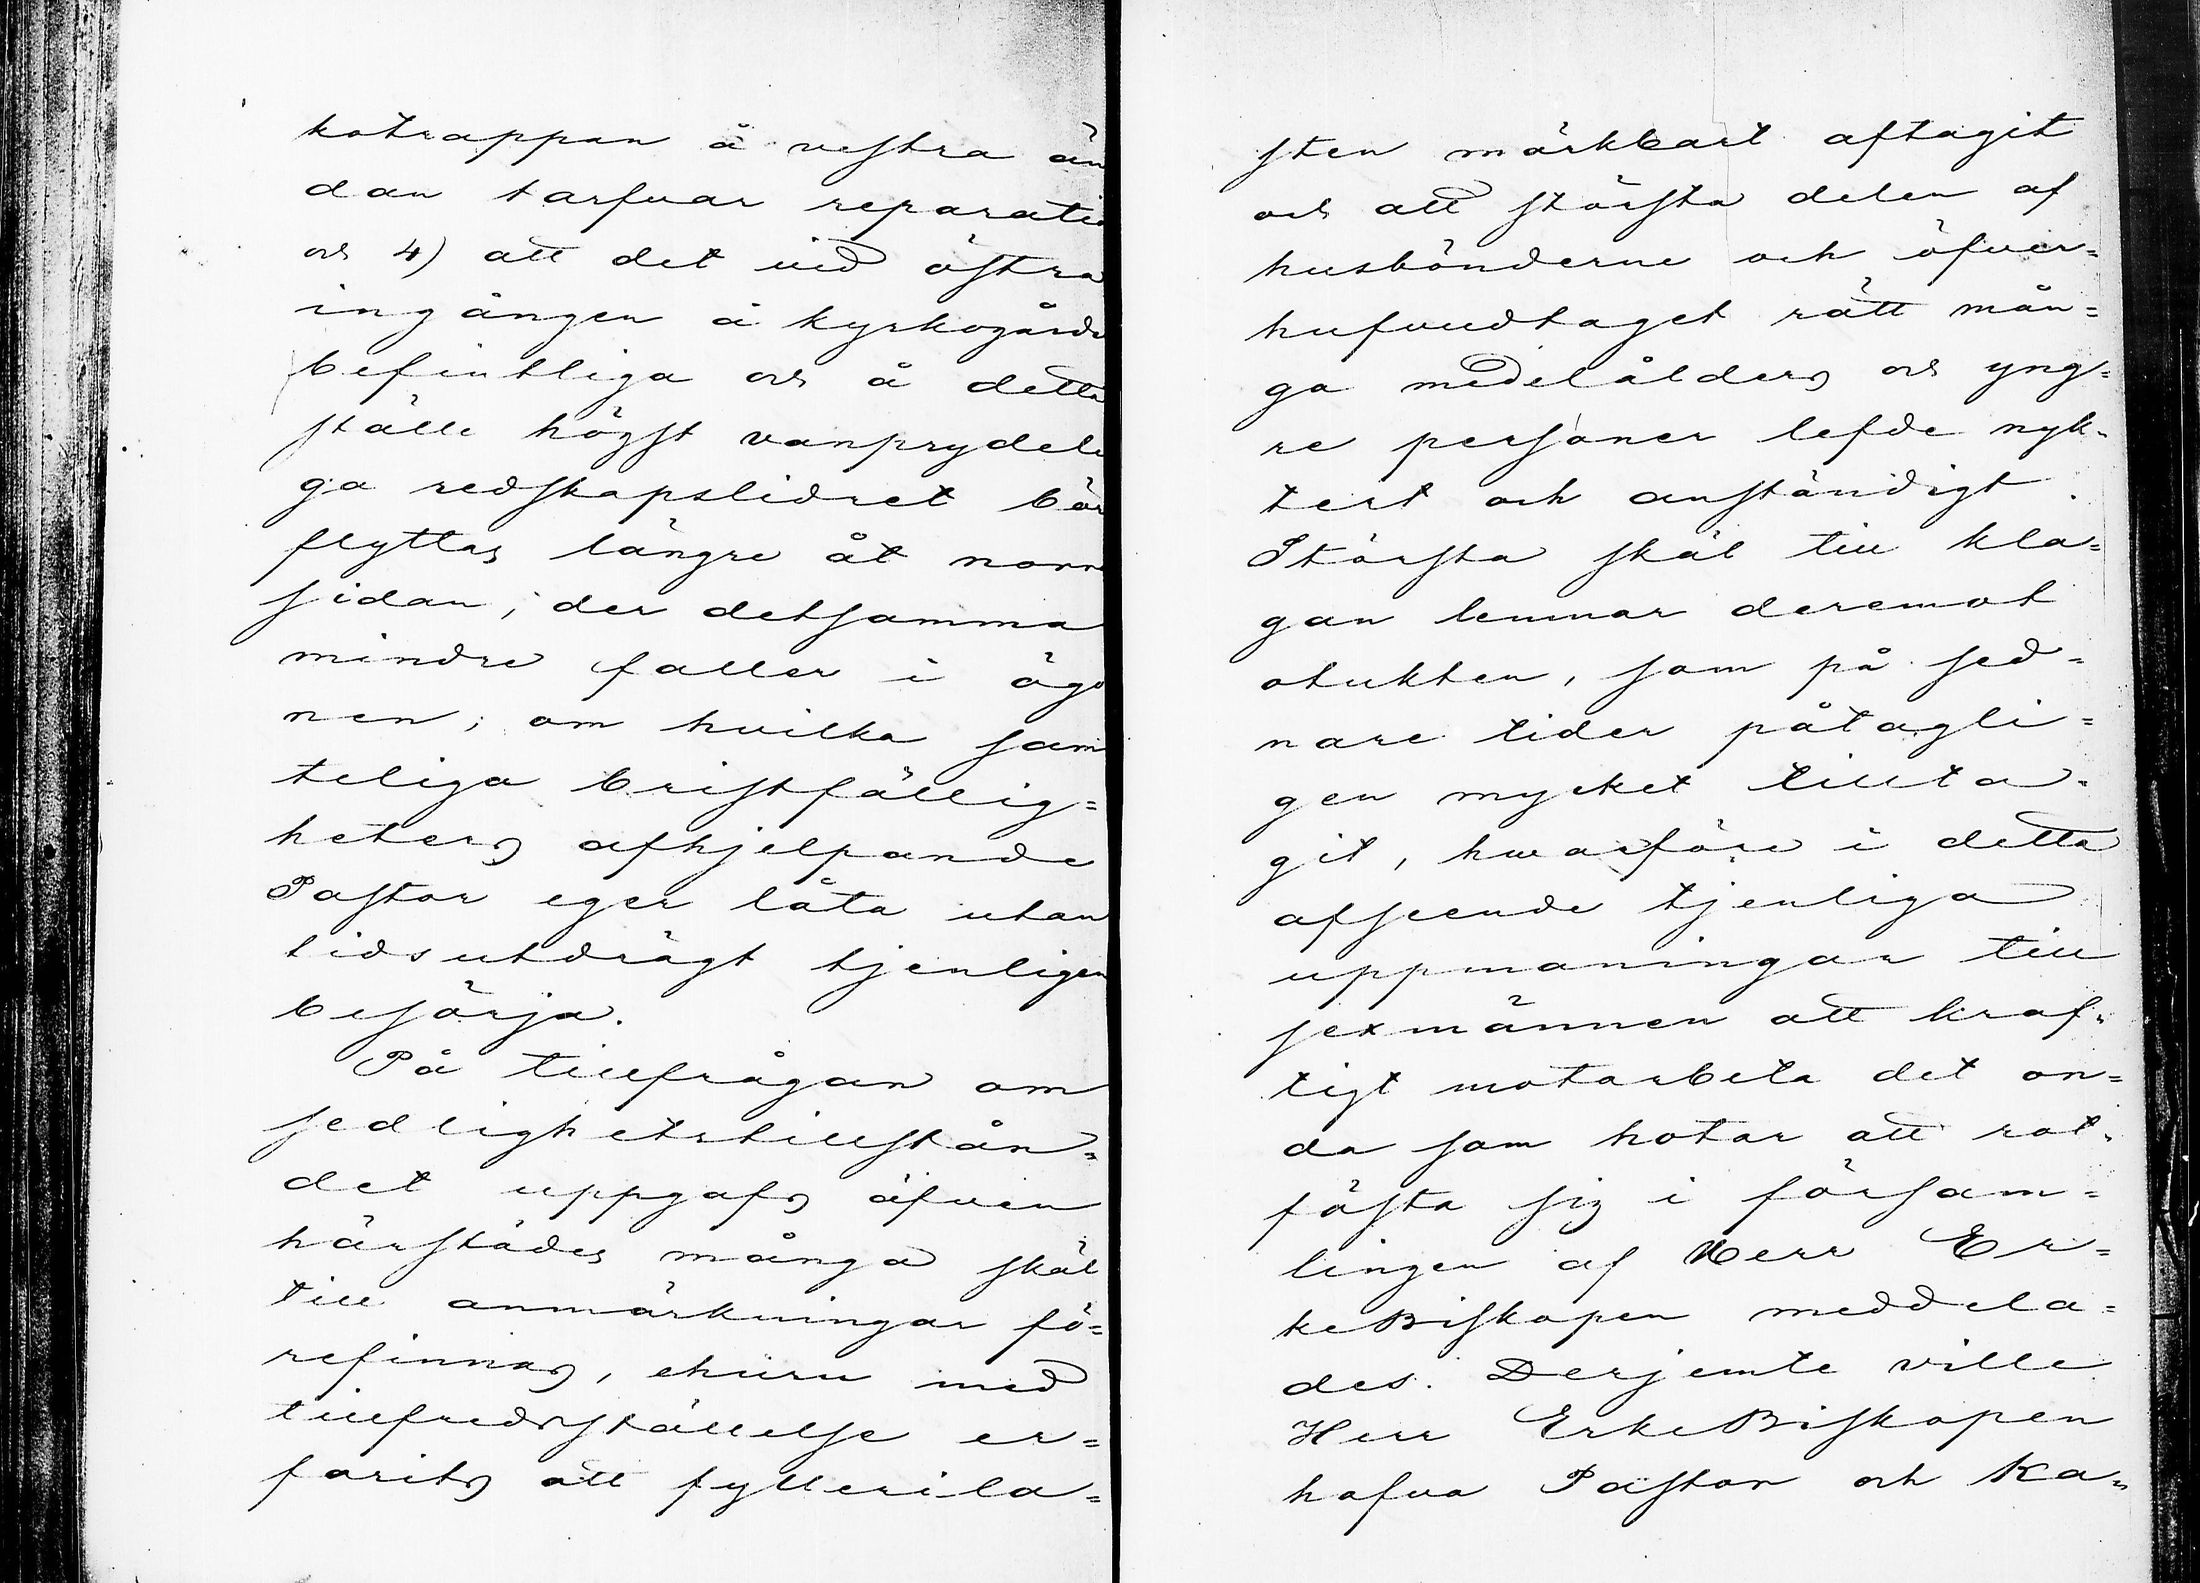 kotrappan å vestra än
dan tarfvar reparatio
och 4) att det vid östra
ingången å kyrkogårde
befintliga och å detta
ställe högst vanprydeli
ga redskapslidret bör
flyttas längre åt norra
sidan, der detsamma
mindre faller i ögo
nen; om hvilka sam
teliga bristfällig=
heters afhjelpande
Pastor eger låta utan
tidsutdrägt tjenligen
besörja.
På tillfrågan om
sedlighetstillstån=
det uppgafs äfven
härstädes många skäl
till anmärkningar fö=
refinnas, ehuru med
tillfredsställelse er=
farits att fylleri la=
sten märkbart aftagit
och att största delen af
husbönderne och öfver=
hufvudtaget rätt mån=
ga medelålders och yng=
re personer lefde nyk=
tert och anständigt.
Största skäl till kla=
gan lemnar deremot
otukten, som på sed=
nare tider påtagli=
gen mycket tillta=
git, hvarföre i detta
afseende tjenliga
uppmaningar till
sexmännen att kraf=
tigt motarbeta det on=
da som hotar att rot=
fästa sig i försam=
lingen af Herr Er=
keBiskopen meddela=
des. Derjemte ville
Herr ErkeBiskopen
hafva Pastor och Ka=